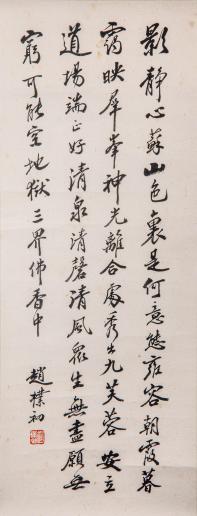 影静心苏山色里是何意態雍容朝霞暮
靄映群峯神光離合處秀出九芙蓉安立
道場端正好清泉清磬清風眾生無盡願無
窮可能空地獄三界佛香中
趙樸初